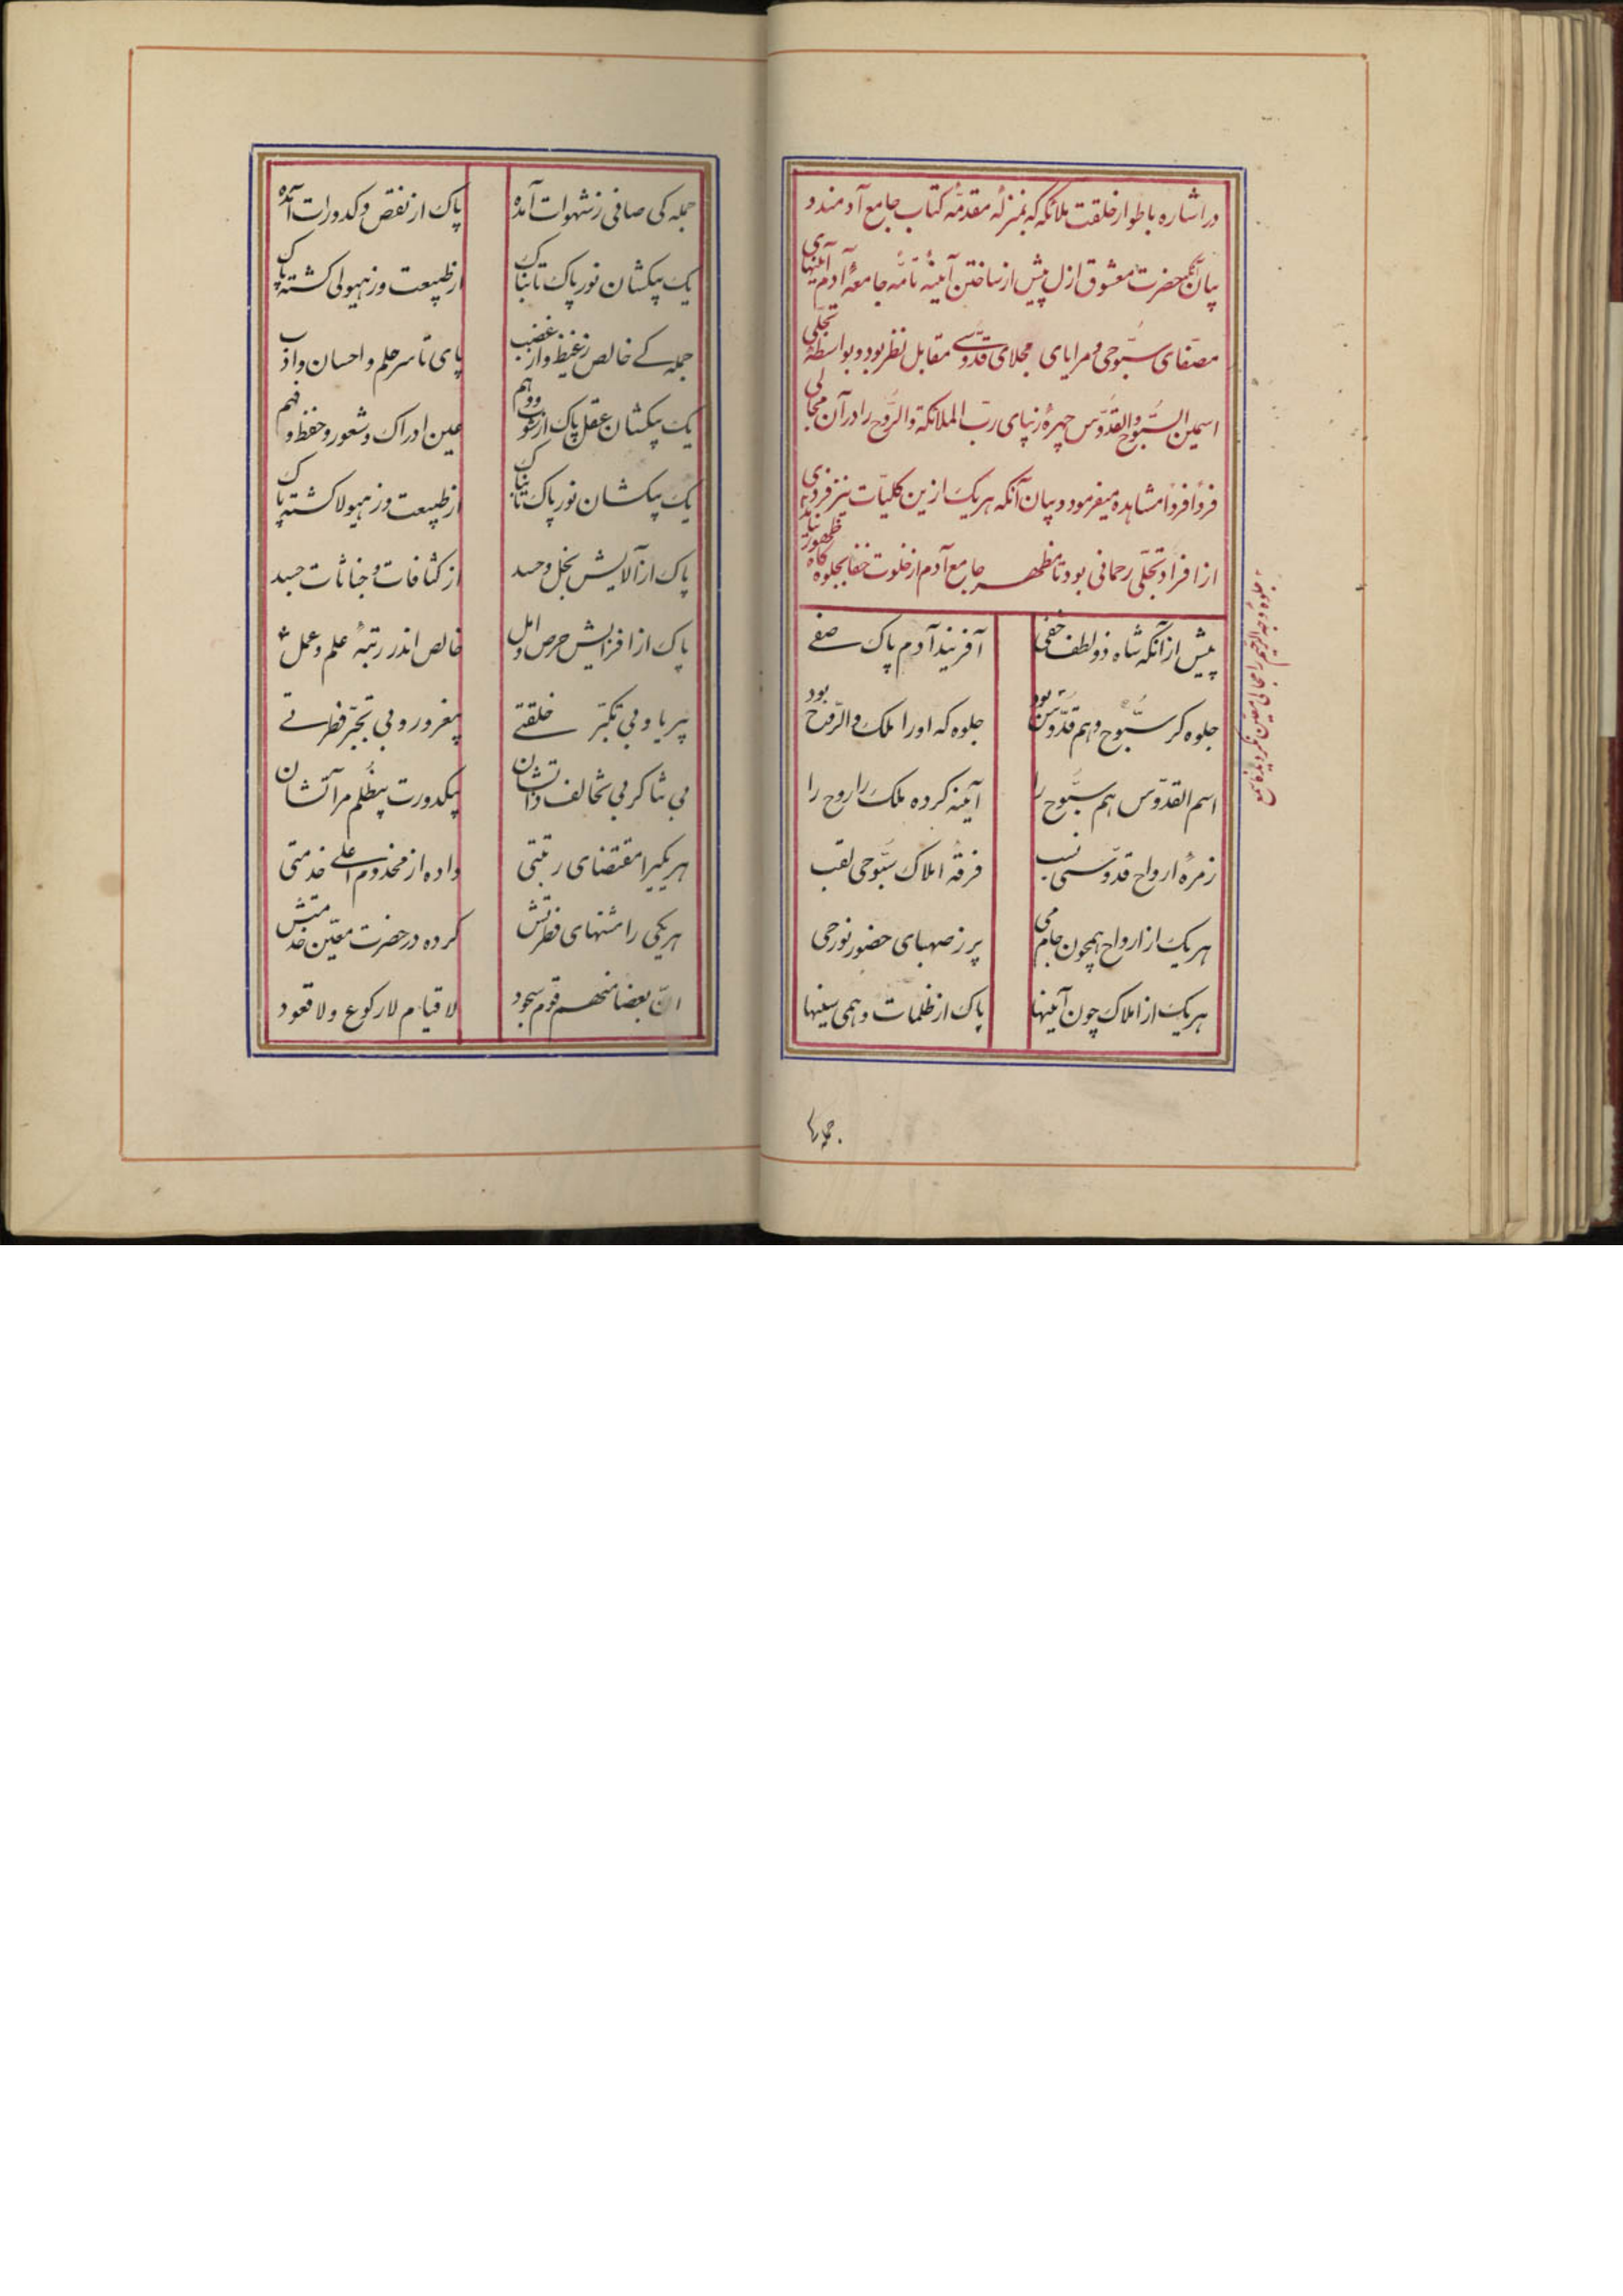 در اشاره باطوار خلقت ملائکه که بمنزلهٔ مقدمّه کتاب جامع آدمند و
بیان آنکه حضرت معشوق ازل پیش از ساختن آیینهٔ تامّهٔ جامعهٔ آدم آینهای
مصفّای سبّوحی و مرایای مجلای قدّوسی مقابل نظر بود و بواسطهٔ تجلّی
اسمین السبّوح والقدّوس چهرهٔ زیبای ربّ الملائکة والرّوح را در آن مجالی
فرداً فرداً مشاهده میفرمود و بیان آنکه هریک ازین کلیّات نیز فردی
از افراد تجلّی رحمانی بود تا مظهر جامع آدم از خلوت خفا بجلوه کاه ظهور نیامد
پیش از آنکه شاه ذو لطف خفی	آفریند آدم پاک صفے
جلوه کر سبّوح و هم قدّوس بود	جلوه که اورا ملک والرّوح بود
اسم القدّوس هم سبّوح را	آینه کرده ملک را روح را
زمرهٔ ارواح قدّوسی نسب	فرقهٔ املاک سبّوحی لقب
هریک از ارواح همچون جام می	پر ز صهبای حضور نور حی
هریک از املاک چون آینها	پاک از ظلمات وهمی سینها
جمله کی
جمله کی صافی ز شهوات آمده	پاک از نقص و کدورات آمده
یک بیکشان نور پاک تابناک	از طبیعت وز هیولی کشته پاک
جمله کے خالص ز غیظ و از غضب	پای تا سر حلم و احسان و ادب
یک بیکشان عقل پاک از و وهم	عین ادراک و شعور و حفظ و فهم
یک بیکشان نور پاک تابناک	از طبیعت وز هیولا کشته پاک
پاک از آلایش بخل و حسد	از کثافات و خباثات جسد
پاک از افزایش حرص و امل	خالص اندر رتبهٔ علم و عمل
بیریا و بی تکبّر خلقتے	بیغرور و بی تجبّر فطرتے
بی تناکر بی تخالف ذاتشان	بیکدورت بیظلم مرآتشان
هریکیرا مقتضای رتبتی	داده از مخدوم اعلی خدمتی
هریکی را منتهای فطرتش	کرده در حضرت معیّن خدمتش
انّ بعضا منهم قوم سجود	لا قیام لا رکوع و لا قعود